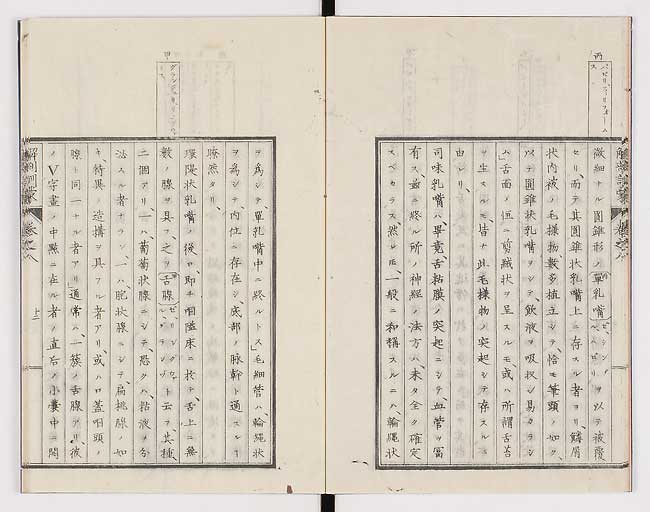 丙
微細ナル圓錐形ノ單乳嘴ヲ以テ被覆
セリ、而テ其圓錐状乳嘴上ニ存スル者ヨリ鱗屑
状内被ノ毛様物、數多植立シテ、恰モ筆頭ノ如ク、
以テ圓錐状乳嘴ヲシテ、飲液ヲ吸収シ易カラシ
ム」舌面ノ恒ニ剪絨状ヲ呈スルモ、或ハ所謂舌苔
ヲ生スルモ、皆ナ此毛様物ノ突起シテ存スルニ
由レリ、
司味乳嘴ハ畢竟、舌粘膜ノ突起ニシテ、血管ヲ冨
有ス、最モ終ル所ノ神經ノ法方ハ、未タ全ク確定
スベカラス、然レ𪜈、一般ニ和稱スルニハ、輪縄状
甲
ヲ為シテ、單乳嘴中ニ終ルトス」毛細管ハ、輪縄状
ヲ為シテ、内位ニ存在シ、底部ノ脉幹ト通スルヿ
瞭然タリ、
環隄状乳嘴ノ後口、即チ咽隘床ニ於テ、舌上ニ無
數ノ腺ヲ具フ、之ヲ舌腺ト云フ、其種、
二個アリ、一ハ葡萄状腺ニシテ、悉ク粘液ヲ分
泌スル者ナラン、一ハ胞状腺ニシテ、扁桃腺ノ如
キ、特異ノ造構ヲ具フル者アリ、或ハ口蓋咽頭ノ
腺ト同一ナル者アリ」通常ハ、一簇ノ舌腺アリ、彼
ノV字畫ノ中點ニ在ル者ノ直后ノ小嚢中ニ開